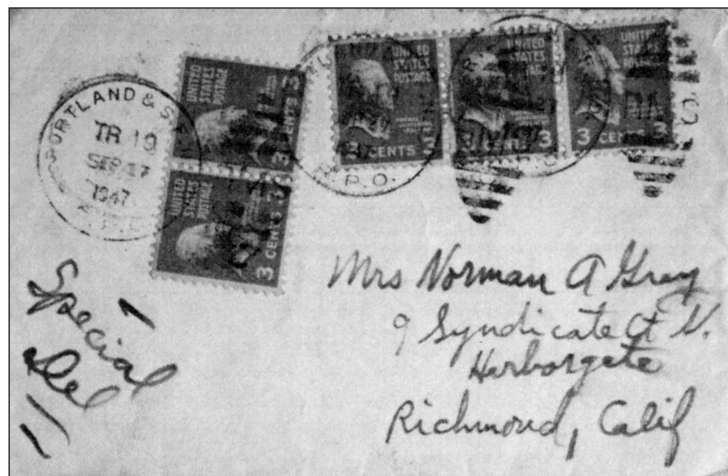 PORTLAND & S.F.
TR 19
SEP 17
1947
R.P.O.
UNITED STATES POSTAGE
3 CENTS 3
UNITED STATES POSTAGE
3 CENTS 3
UNITED STATES POSTAGE
3 CENTS 3
UNITED STATES POSTAGE
3 CENTS 3
UNITED STATES POSTAGE
3 CENTS 3
R.P.O.
Special
Del
Mrs Norman A Gray
9 Syndicate Ct N.
Harborgate
Richmond, Calif